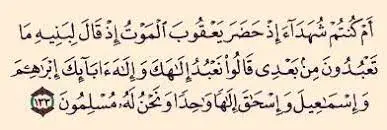 أَمْ كُنتُمْ شُهَدَآءَ إِذْ حَضَرَ يَعْقُوبَ ٱلْمَوْتُ إِذْ قَالَ لِبَنِيهِ مَا
تَعْبُدُونَ مِنۢ بَعْدِى قَالُوا۟ نَعْبُدُ إِلَٰهَكَ وَإِلَٰهَ ءَابَآئِكَ إِبْرَٰهِـۧمَ
وَإِسْمَٰعِيلَ وَإِسْحَٰقَ إِلَٰهًا وَٰحِدًا وَنَحْنُ لَهُۥ مُسْلِمُونَ ١٣٣